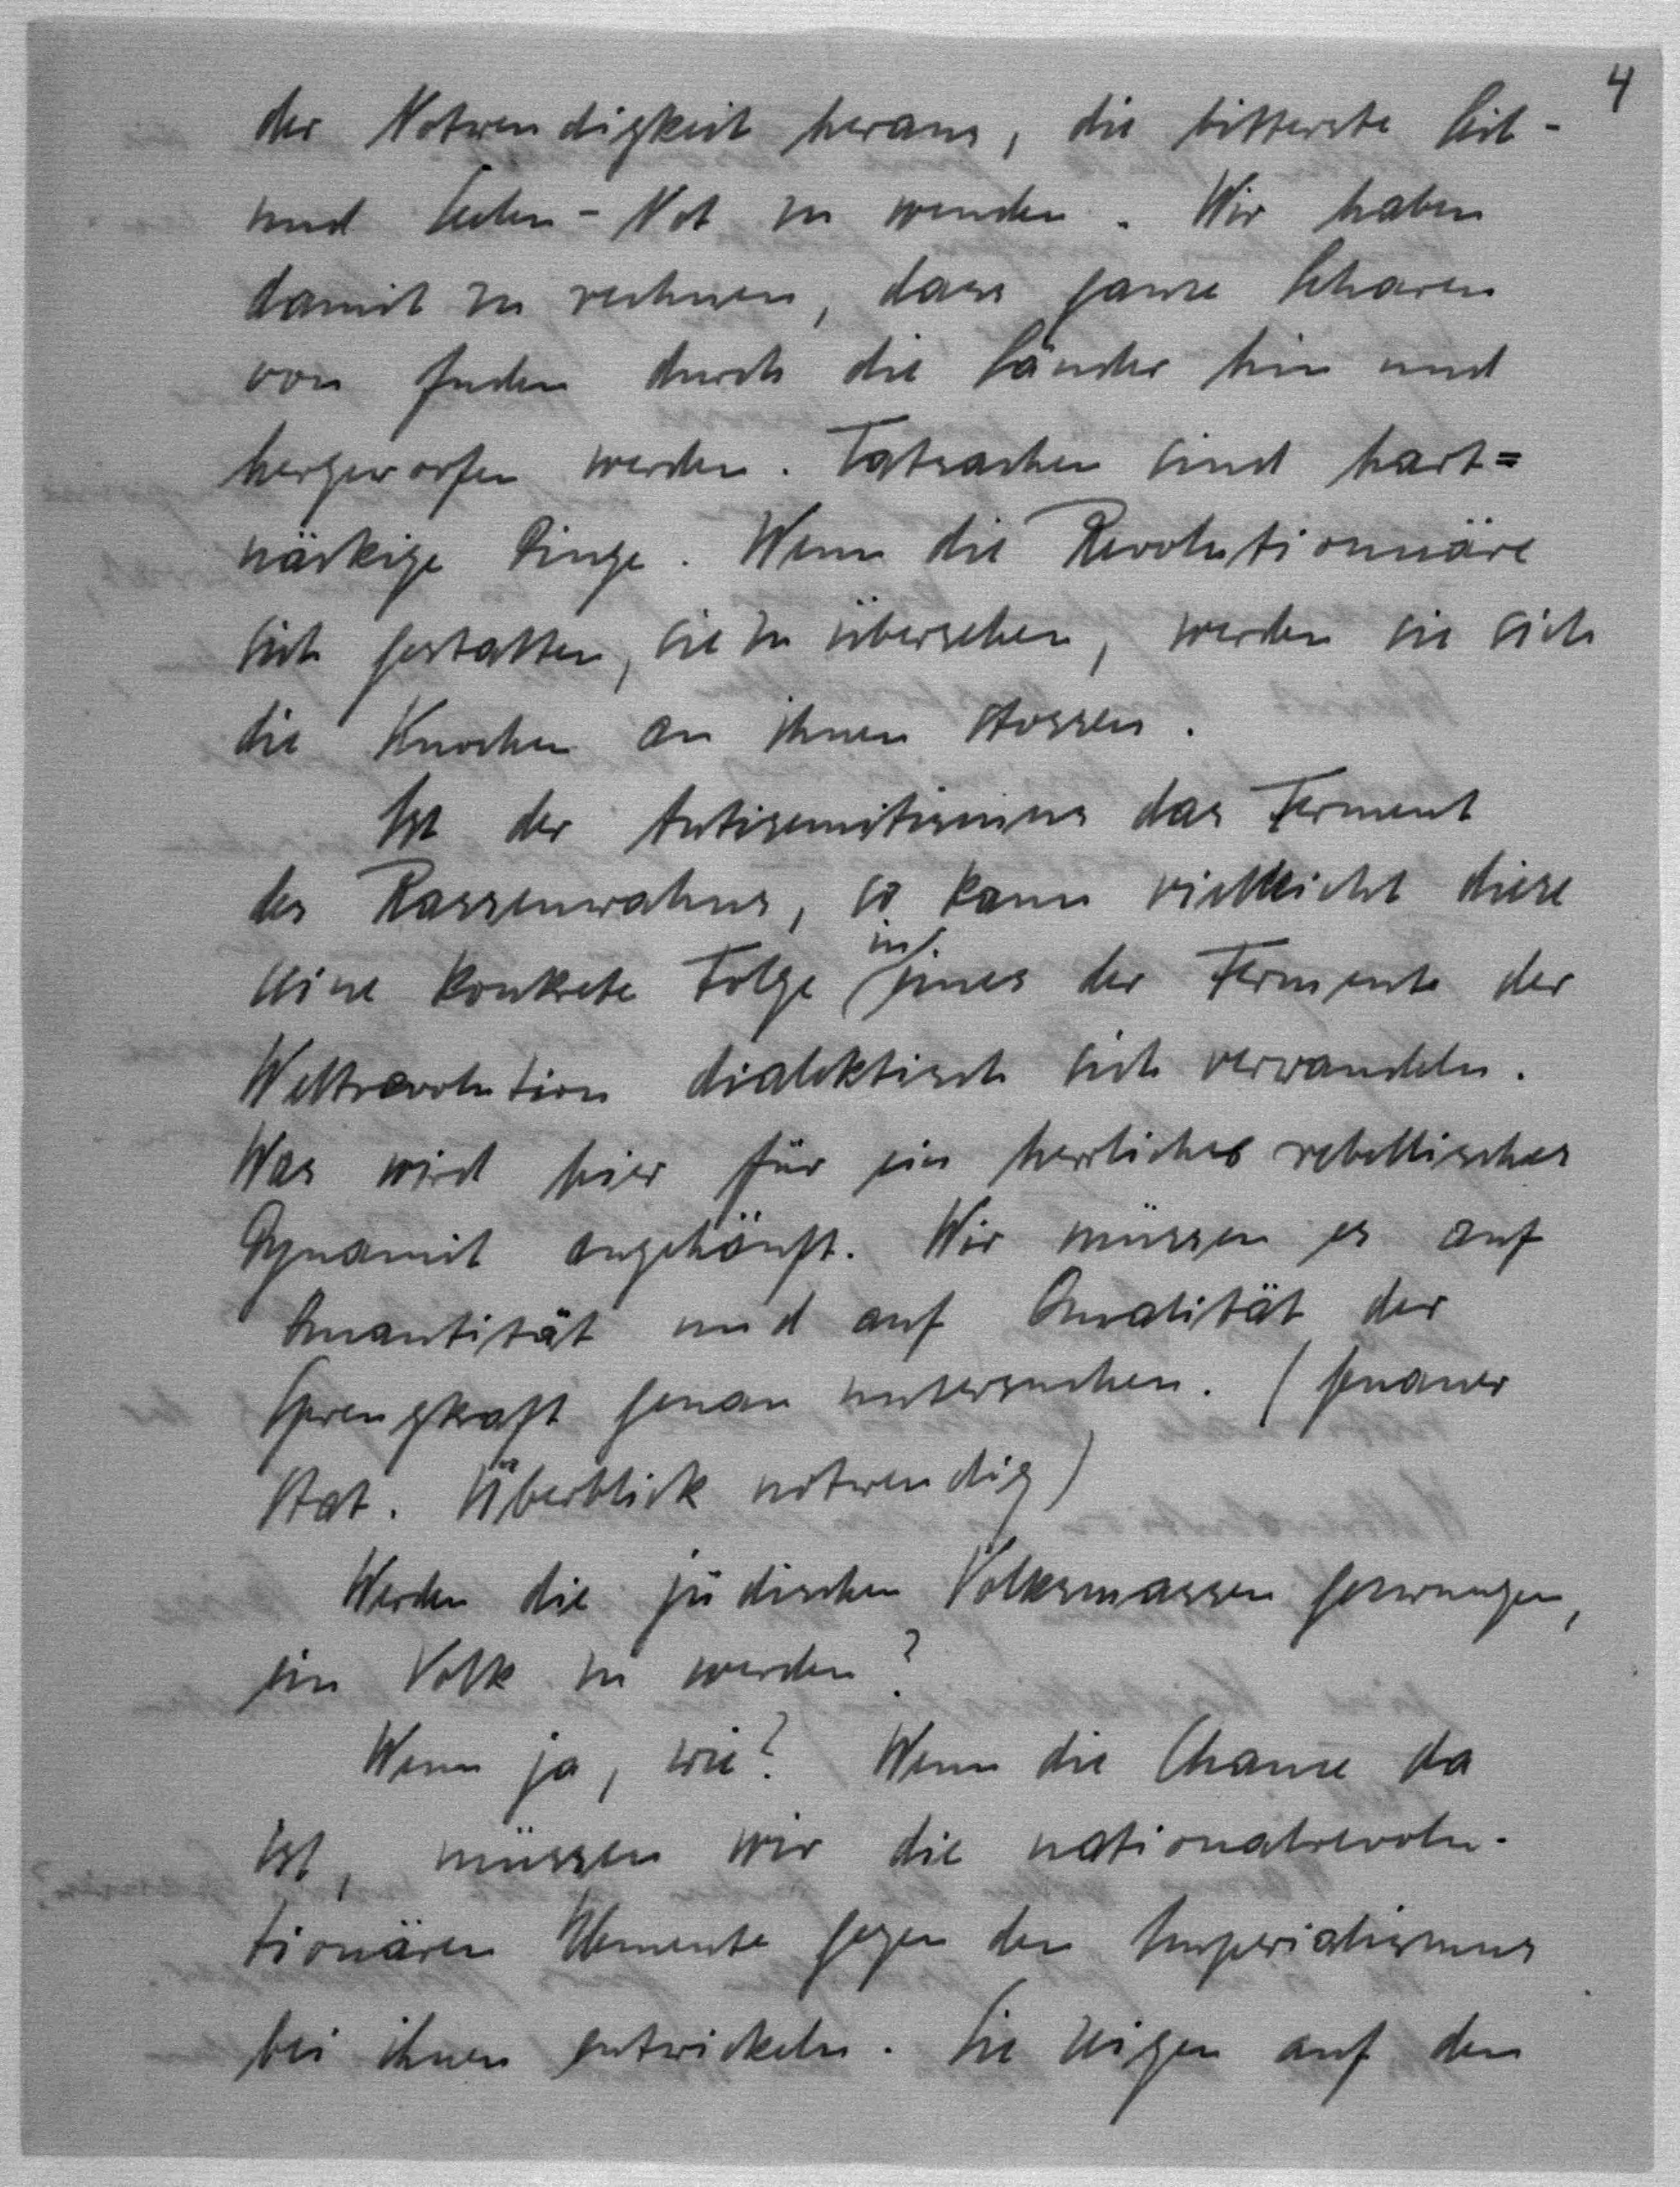 4
der Notwendigkeit heraus, die bitterste Leib-
und Seelen-Not zu wenden. Wir haben
damit zu rechnen, dass ganze Scharen
von Juden durch die Länder hin und
hergeworfen werden. Tatsachen sind hart=
näckige Dinge. Wenn die Revolutionäre
sich gestatten, sie zu übersehen, werden sie sich
die Knochen an ihnen stossen.
Ist der Antisemitismus das Ferment
des Rassenwahns, so kann vielleicht diese
seine konkrete Folge in eines der Fermente der
Weltrevolution dialektisch sich verwandeln.
Was wird hier für ein herrliches rebellisches
Dynamit angehäuft. Wir müssen es auf
Quantität und auf Qualität der
Sprengkraft genau untersuchen. (Genauer
Stat. Überblick notwendig)
Werden die jüdischen Volksmassen gezwungen,
ein Volk zu werden?
Wenn ja, wie? Wenn die Chance da
ist, müssen wir die nationalrevolu-
tionären Elemente gegen den Imperialismus
bei ihnen entwickeln. Sie zeigen auf den